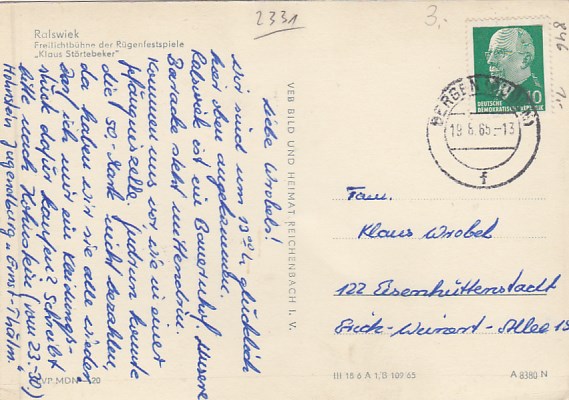 2331
3.-
846
1.-
Ralswiek
Freilichtbühne der Rügenfestspiele
„Klaus Störtebeker"
Liebe Wrobels!
Wir sind um 13 glücklich
hier oben angekommen.
Ralswiek ist ein Bauernhof. Unsere
Baracke steht mittendrin.
Kommen uns vor wie in einer
die 50- Mark nicht bezahlen,
da haben wir sie alle wieder.
Darf ich mir ein Kleidungs-
stück dafür kaufen? Schreibt
bitte nach Hohnstein (vom 23.-30.)
Hohnstein Jugendburg „Ernst Thälm."
VEB BILD UND HEIMAT REICHENBACH I. V.
DEUTSCHE
DEMOKRATISCHE REPUBLIK
10
BERGEN
19.6.65.-13
f
Fam.
Klaus Wrobel
122 Eisenhüttenstadt
Erich-Weinert-Allee 15
VP MDN 20
III 18 6 A 1,B 109 65
A 8380 N